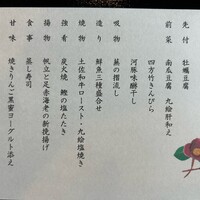 先付　牡蠣豆腐
前菜　南瓜豆腐　九絵肝和え
四方竹きんぴら
河豚味醂干し
吸物　蕪の摺流し
造り　鮮魚三種盛合せ
焼物　土佐和牛ロースト・九絵塩焼き
強肴　炭火焼　鰹の塩たたき
揚物　帆立と足赤海老の新挽揚げ
食事　蒸し寿司
甘味　焼きりんご黒蜜ヨーグルト添え